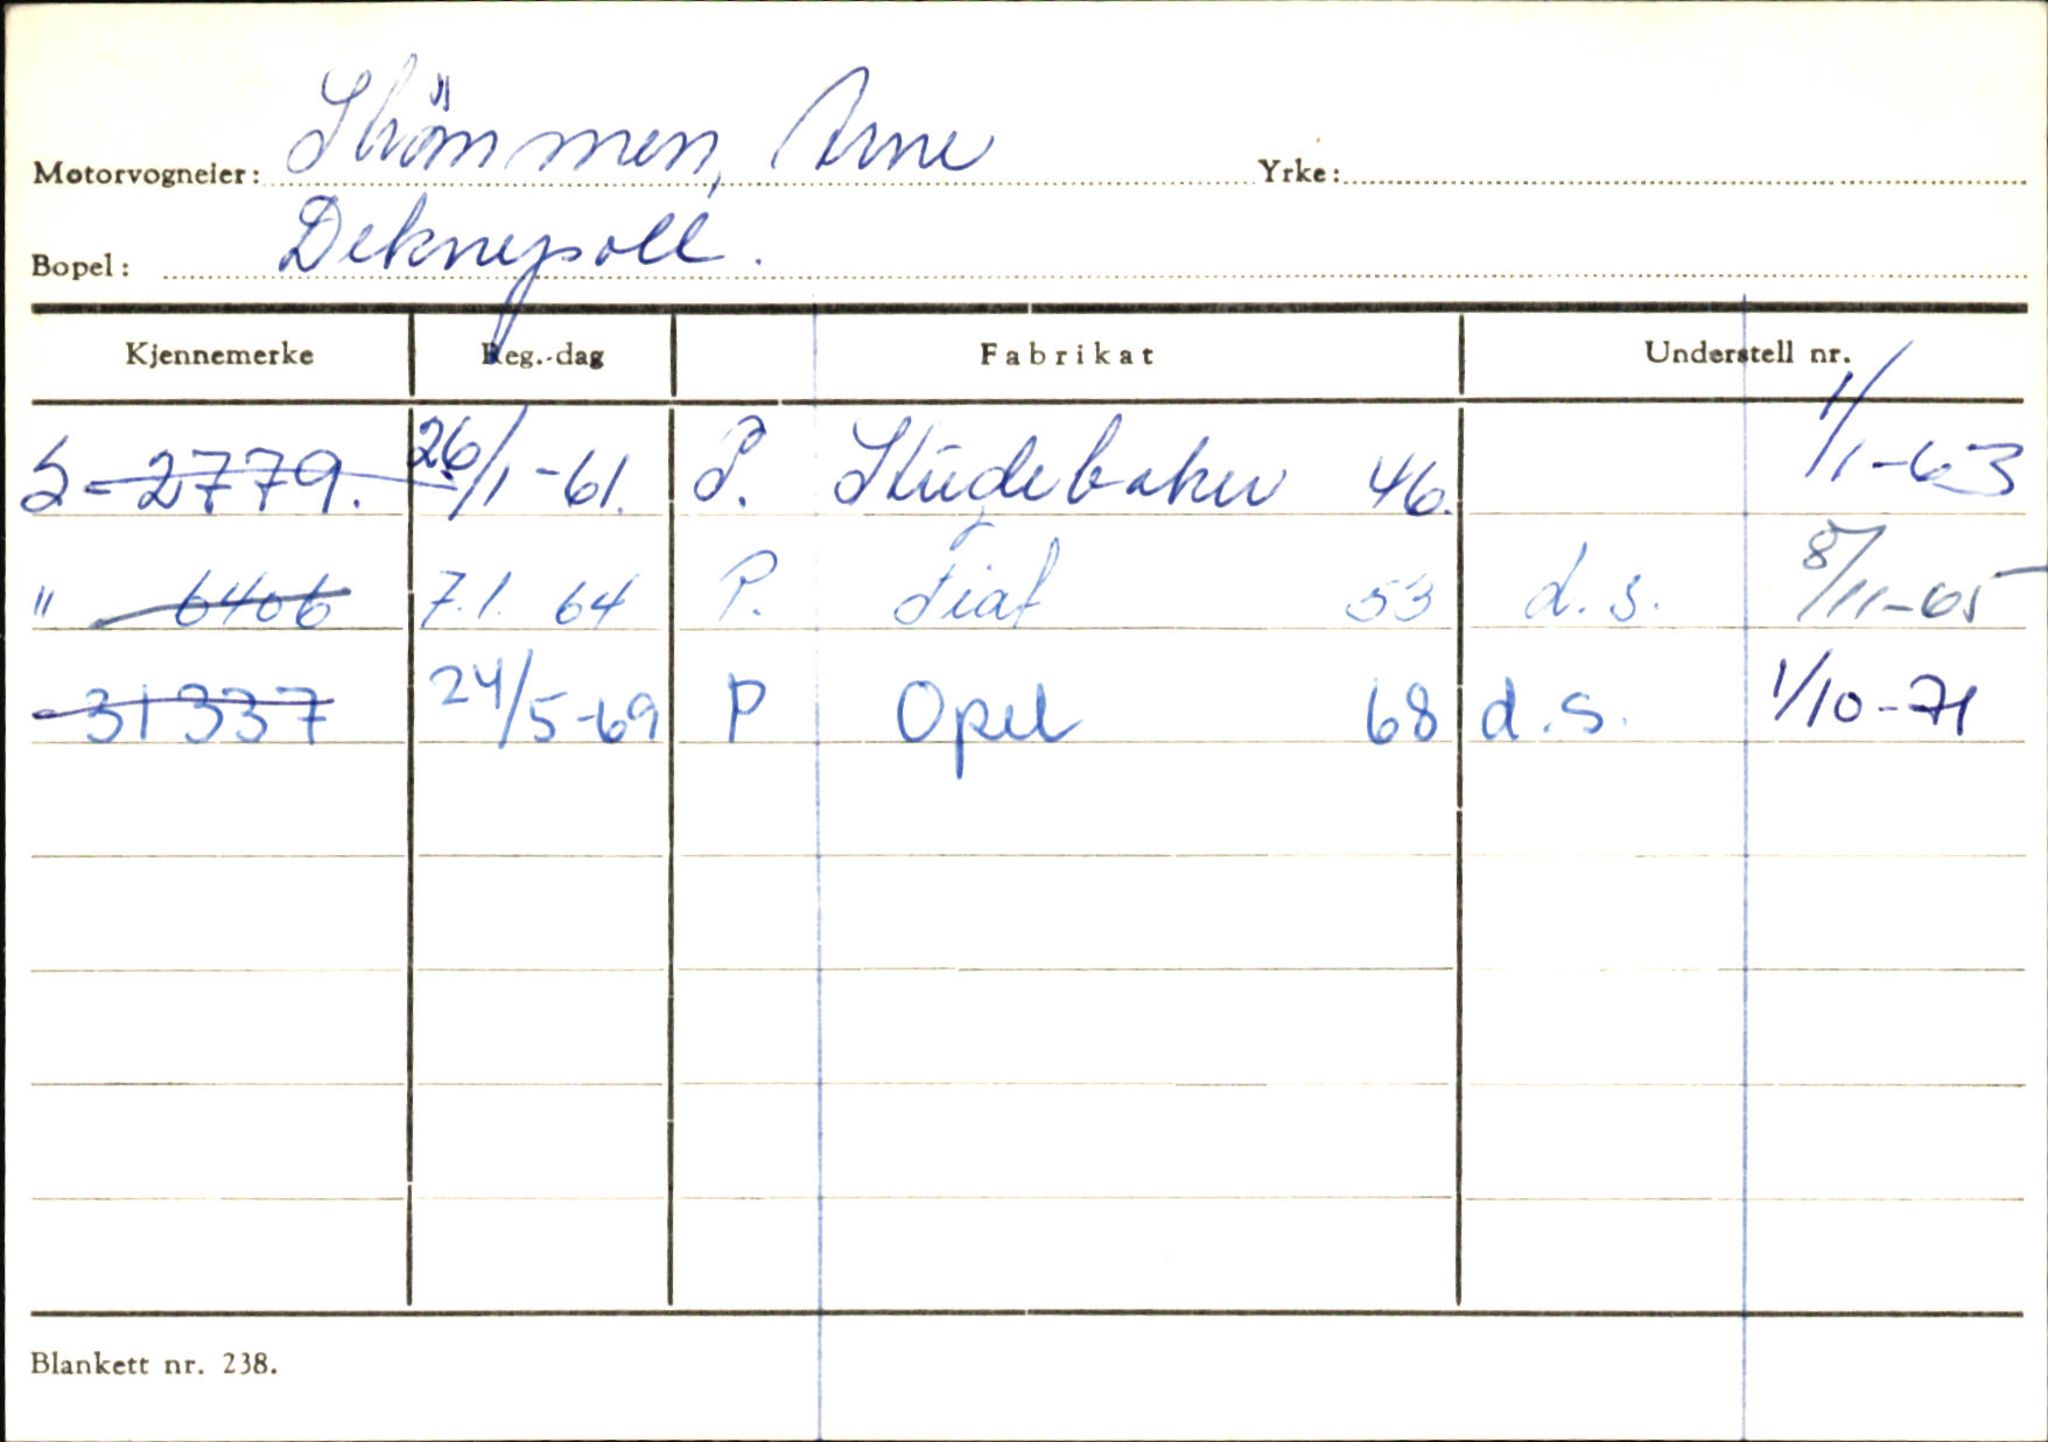 Motorvogneier: Strömmen, Arne Yrke:
Bopel: Deknepoll.
Kjennemerke Reg.-dag Fabrikat Understell nr.
S-2779. 26/1-61. P. Studebaker 46. 1/1-63
" 6406 7.1. 64 P. Fiat 53 d.s. 8/11-65
- 31337 24/5-69 P Opel 68 d.s. 1/10-71
Blankett nr. 238.